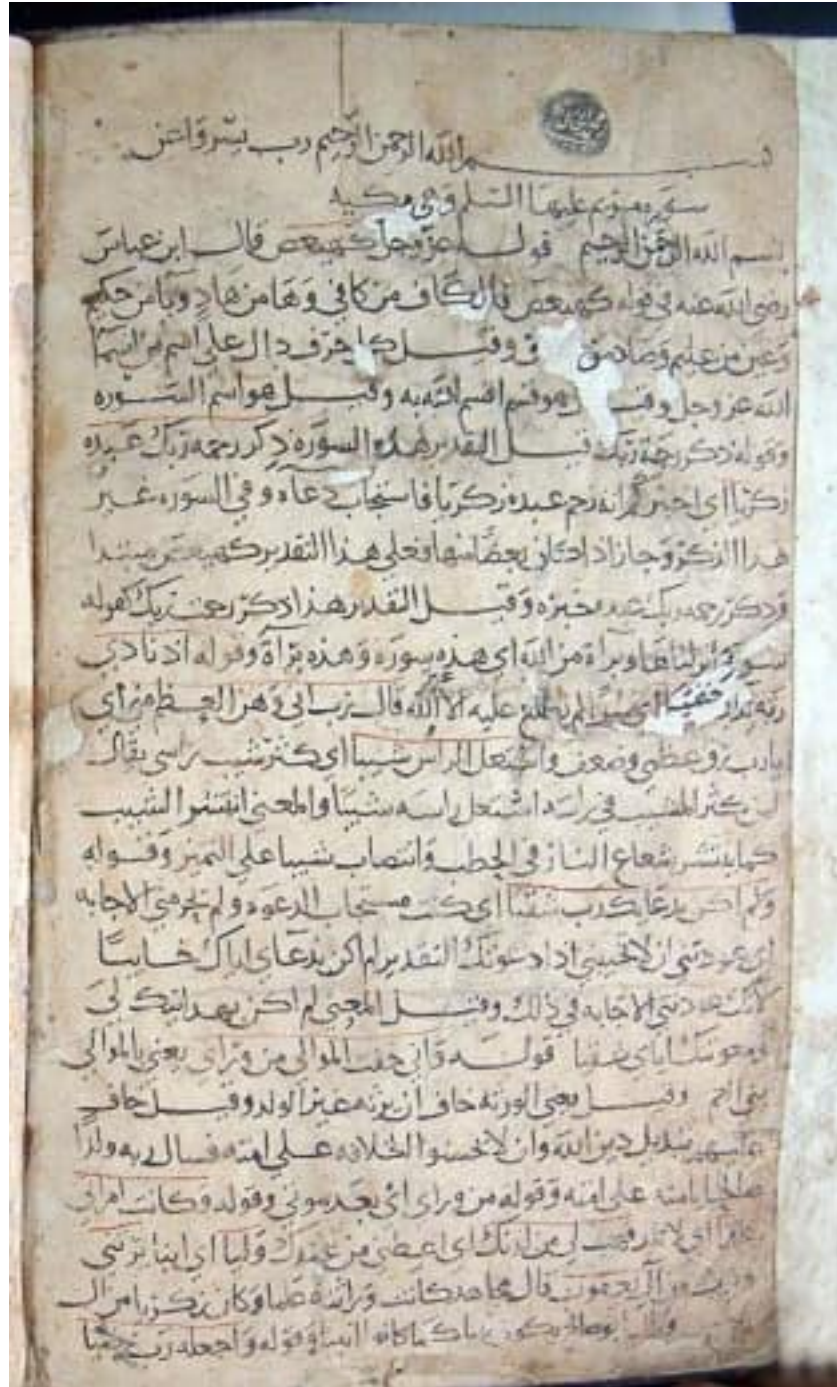 بسم الله الرحمن الرحيم رب يسر واعن
سورة مريم عليها السلم وهي مكيه
بسم الله الرحمن الرحيم قوله عز وجل كهيعص قال ابن عباس
رضي الله عنه في قوله كهيعص قال الكاف من كافي وها من هاد ويا من حكيم
وعين من عليم وصاد من وقيل كل حرف دال على اسم من اسما
الله عز وجل وقيل هو قسم اقسم الله به وقيل هو اسم السوره
وقوله ذكر رحمة ربك قيل التقدير هذه السورة ذكر رحمه ربك عبده
زكريا اي اخبركم انه رحم عبده زكريا فاستجاب دعاه وفي السوره غير
هذا الذكر وجاز اذ كان بعضا منها فعلى هذا التقدير كهيعص مبتدا
وذكر رحمه ربك عبده خبره وقيل التقدير هذا ذكر رحمت ربك كقوله
سورة انزلناها وبراة من الله اي هذه سورة وهذه براة وقوله اذ نادى
ربه ندا خفيا اي سرا لم يطلع عليه الا الله قال رب اني وهن العظم مني اي
يا رب وعظمي وضعف واشتعل الراس شيبا اي كثر شيب راسي يقال
لمن كثر الشيب في راسه اشتعل راسه شيبا والمعنى انتشر الشيب
كما ينتشر شعاع النار في الحطب وانتصاب شيبا على التميز وقوله
ولم اكن بدعايك رب شقيا اي كنت مستجاب الدعوه ولم تحرمني الاجابه
اي عودتني ان لا تخيبني اذا دعوتك التقدير لم اكن بدعاي اياك خايبا
لانك عودتني الاجابه في ذلك وقيل المعنى لم اكن بهدايتك لي
ودعوتك اياي شقيا قوله واني خفت الموالي من وراي يعني بالموالي
بني العم وقيل يعني الورثه خاف ان يرثه غير الولد وقيل خاف
تبديل دين الله وان لا يحسنوا الخلافه على امته فسال ربه ولدا
صالحا يامنه على امته وقوله من وراي اي بعد موتي وقوله وكانت امراتي
عاقرا اي لا تلد فهب لي من لدنك اي اعطني من عندك وليا اي ابنا يرثني
ويرث من آل يعقوب قال مجاهد كانت وراثته علما وكان زكريا من آل
يعقوب وقال ابو صالح يكون نبيا كما كانوا انبيا وقوله واجعله رب رضيا